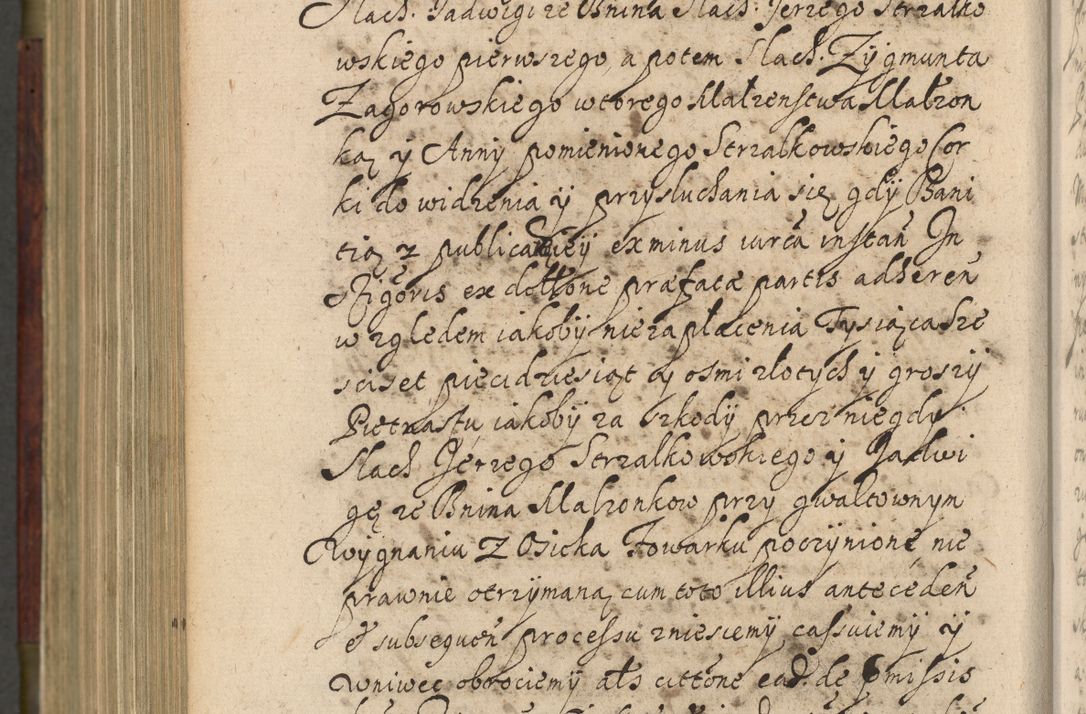 Slach. Jadwigi ze Bnina Slach. Jerzego Strzałko
wskiego pierwszego, a potem Slach. Zÿgmunta
Zagorowskiego wtorego Małzenstwa Małzon
ką ÿ Annÿ pomienionego Strzalkowskiego Cor
ki do widzenia ÿ przysluchania się, gdÿ Bani
tią z publicatieÿ ex minus iurea instan In
Rigoris ex dottone præfatæ partis adheren
wzgledem iakobÿ niezapłacenia Tysiąca sze
sciset, piecidziesiąt ÿ osmi złotych ÿ groszÿ
Pietnastu, iakobÿ za szkodÿ przez niegdy
Slach Jerzego Strzalkowskiego ÿ Jadwi
gę ze Bnina Malzonkow przy gwaltownym
Wÿgnaniu z Osicka Fowarku poczÿnione, nie
prawnie otrzÿmaną cum toto illius anteceden
et subsequen processu zniesiemÿ cassuiemÿ ÿ
wniwec obrociemÿ als cittone ead. de pmissis